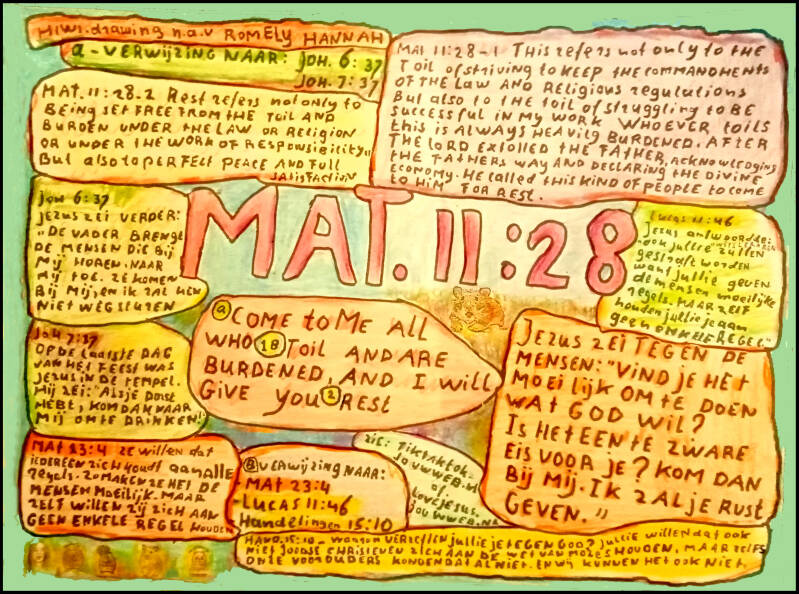 HIWI.drawing n.a.v ROMELY HANNAH
a - VERWIJZING NAAR: JOH. 6:37
JOH. 7:37
MAT 11:28-1 THIS refers not only to the
Toil of striving to KEEP the COMMANDMENTS
OF THE LAW AND Religious regulations
But also to the toil of struggling to BE
successful IN MY WORK WHOEVER toils
this is ALWAYS HEAVILY BURDENED. AFTER
THE LORD extolled THE FATHER, acknowledging
THE FATHERS WAY AND DECLARING THE DIVINE
economy. He called this kind of people to come
to HIM FOR REST.
MAT. 11:28.2 Rest refers not only to
BEING SET FREE FROM THE TOIL AND
BURDEN UNDER THE LAW OR Religion
OR UNDER THE WORK OF RESPONSIBILITY
But also to PERFECT PEACE AND FULL
SATISFACTION
MAT. 11:28
JOH 6:37
JEZUS ZEI VERDER:
"DE VADER BRENGT
DE MENSEN DIE BIJ
MIJ HOREN, NAAR
MIJ TOE. ZE KOMEN
BIJ MIJ, en ik ZAL HEN
NIET WEGSTUREN
Lucas 11:46
Jezus antwoordde:
"OOK jullie zullen
gestraft worden
want jullie geven
de mensen moeilijke
regels. MAAR ZELF
houden jullie je aan
geen enkele REGEL."
a COME to ME ALL
WHO 1B TOIL AND ARE
BURDENED, AND I will
GIVE YOU 2 REST
JOH 7:37
OP DE LAATSTE DAG
VAN HET FEEST WAS
JEZUS IN DE TEMPEL.
Hij ZEI: "ALS JE DORST
HEBT, KOM DAN NAAR
MIJ OM TE DRINKEN!
JEZUS ZEI TEGEN DE
MENSEN: "VIND JE HET
MOEILIJK OM TE DOEN
WAT GOD WIL?
IS HET EEN TE ZWARE
EIS VOOR JE? KOM DAN
BIJ MIJ. IK ZAL JE RUST
GEVEN."
MAT 23:4 ZE willen dat
IEDEREEN ZICH HOUDT aan alle
regels. ZO MAKEN ZE HET DE
MENSEN MOEILIJK. MAAR
ZELF willen zij ZICH AAN
GEEN ENKELE REGEL HOUDEN
B VERWIJZING NAAR:
MAT 23:4
-LUCAS 11:46
Handelingen 15:10
ZIE: TIKTAKTOK.
JOUWWEB.NL
of
LOVEJESUS.
JOUWWEB.NL
HAND. 15:10 - waarom VERZETTEN jullie JE TEGEN GOD? Jullie willen dat ook
NIET JOODSE CHRISTENEN ZICH AAN DE WET VAN MOZES HOUDEN, MAAR ZELFS
ONZE VOOROUDERS KONDEN DAT AL NIET. EN WIJ KUNNEN HET OOK NIET.